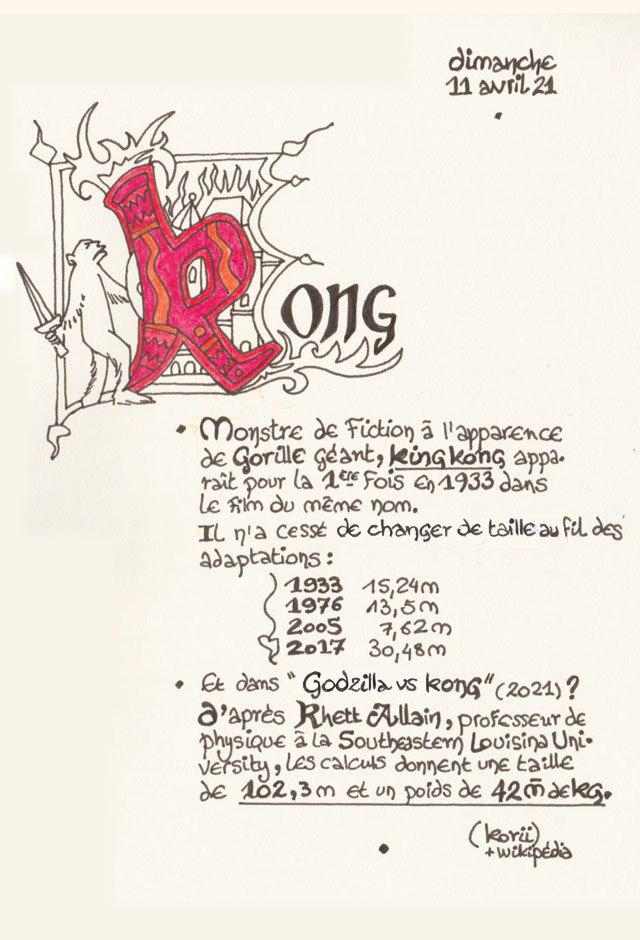 dimanche
11 avril 21
Kong
• Monstre de Fiction à l'apparence
de Gorille géant, King Kong appa-
raît pour la 1ère Fois en 1933 dans
le film du même nom.
Il n'a cessé de changer de taille au fil des
adaptations :
1933 15,24m
1976 13,5m
2005 7,62m
2017 30,48m
• Et dans "Godzilla vs Kong" (2021) ?
d'après Rhett Allain, professeur de
physique à la Southeastern Louisina Uni-
versity, les calculs donnent une taille
de 102,3m et un poids de 42m̃ de kg.
(korii)
+ wikipédia